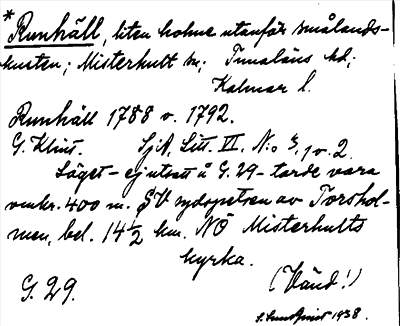 * Runhäll, liten holme utanför smålands-
kusten; Misterhult sn; Tunaläns hd;
Kalmar l.
Runhäll 1788 o. 1792.
G. Klint. SjA, Litt. VI. N:o 3, 1 o. 2.
Läget – ej utsatt å G. 29 – torde vara
omkr. 400 m. SV sydspetsen av Torshol-
men, bel. 14½ km. NÖ Misterhults
kyrka.
G. 29. (Vänd!)
S. Sundqvist 1938.